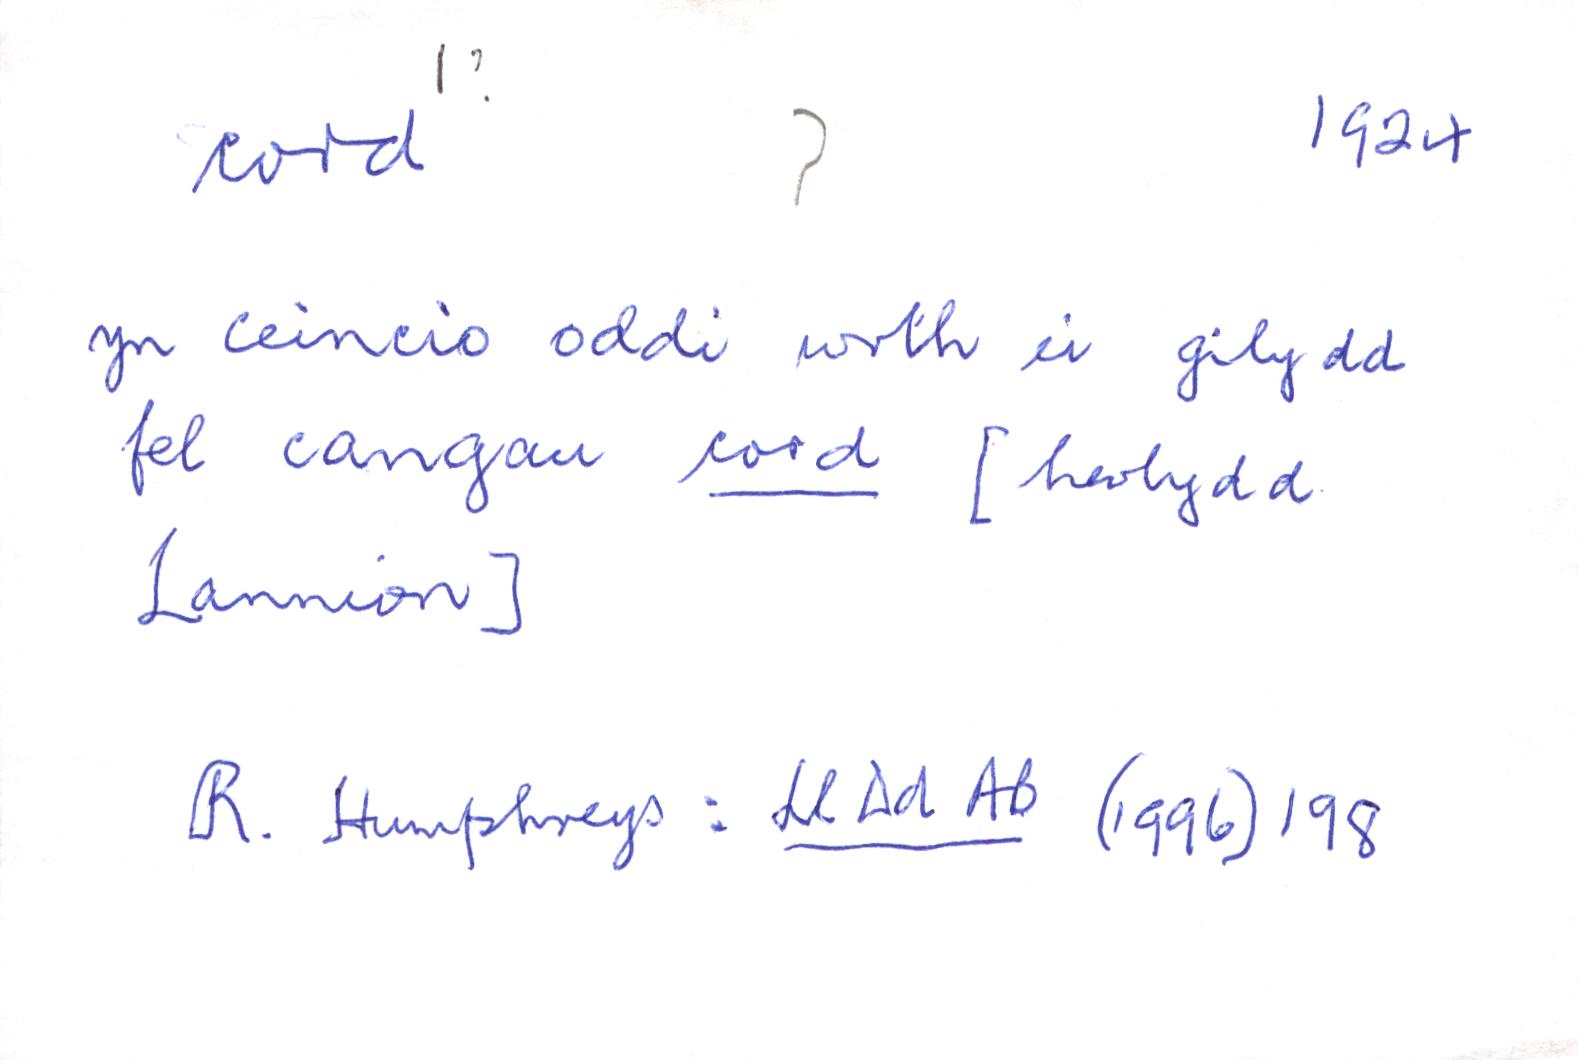 cord 1? ? 1924
yn ceincio oddi wrth ei gilydd
fel cangau cord [heolydd
Lannion]
R. Humphreys: Ll Dd Ab (1996) 198